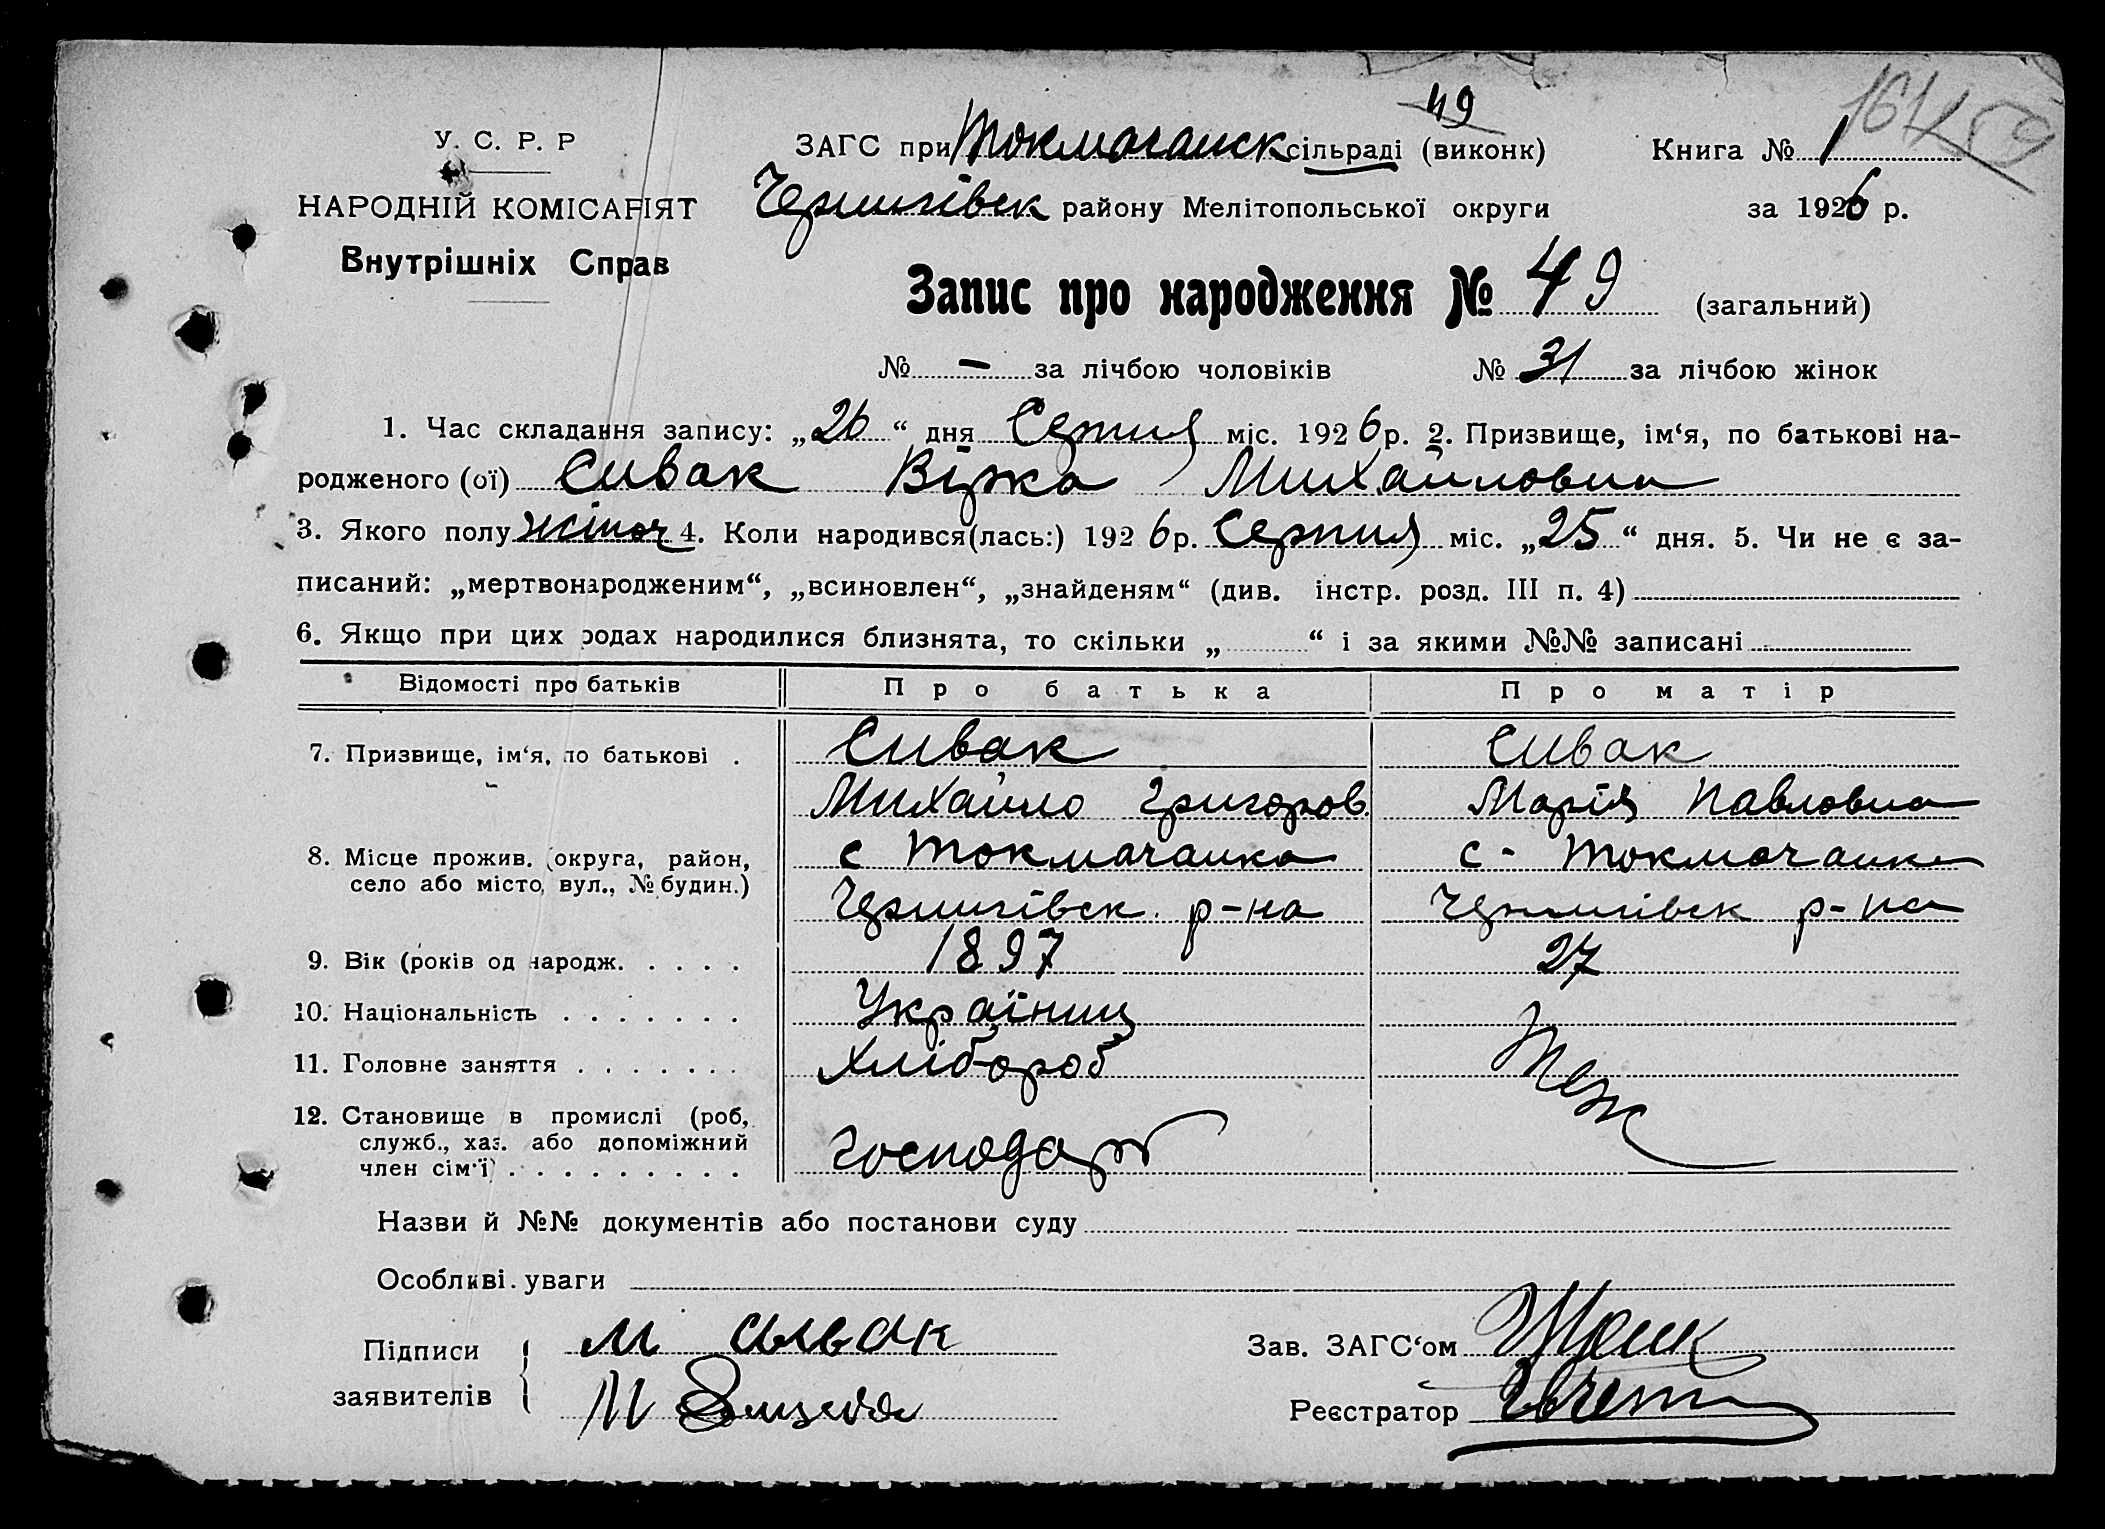 49
161 159
У. С. Р. Р
ЗАГС при Токмачанск сільраді (виконк)
Книга № 1
НАРОДНІЙ КОМІСАРІЯТ
Чернигівск району Мелітопольської округи
за 1926 р.
Внутрішніх Справ
Запис про народження № 49 (загальний)
№ – за лічбою чоловіків № 31 за лічбою жінок
1. Час складання запису: „26“ дня Серпня міс. 1926 р. 2. Призвище, ім‘я, по батькові на-
родженого (ої) Сивак Вірка Михайловна
3. Якого полу жіноч 4. Коли народився(лась:) 1926 р. Серпня міс. „25“ дня. 5. Чи не є за-
писаний: „мертвонародженим“, „всиновлен“, „знайденям“ (див. інстр. розд. III п. 4)
6. Якщо при цих родах народилися близнята, то скільки „ “ і за якими №№ записані
Відомості про батьків Про батька Про матір
7. Призвище, ім‘я, по батькові . Сивак Сивак
Михайло Григоров. Марія Павловна
8. Місце прожив. (округа, район, с Токмачанка с- Токмачанка
село або місто, вул., № будин.)
Чернигівск. р-на Чернигівск р-на
9. Вік (років од народж. . . . . 1897 27
10. Національність . . . . . . . Українец
11. Головне заняття . . . . . . . Хлібороб Теж
12. Становище в промислі (роб,
служб., хаз. або допоміжний
член сім‘ї) . . . . . . . . . Господарь
Назви й №№ документів або постанови суду
Особливі уваги
Підписи М Сивак Зав. ЗАГС‘ом
заявителів М Реєстратор